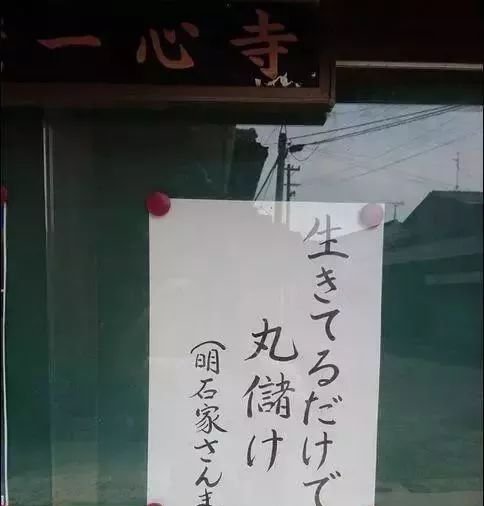 一心寺
生きてるだけで
丸儲け
(明石家さんま